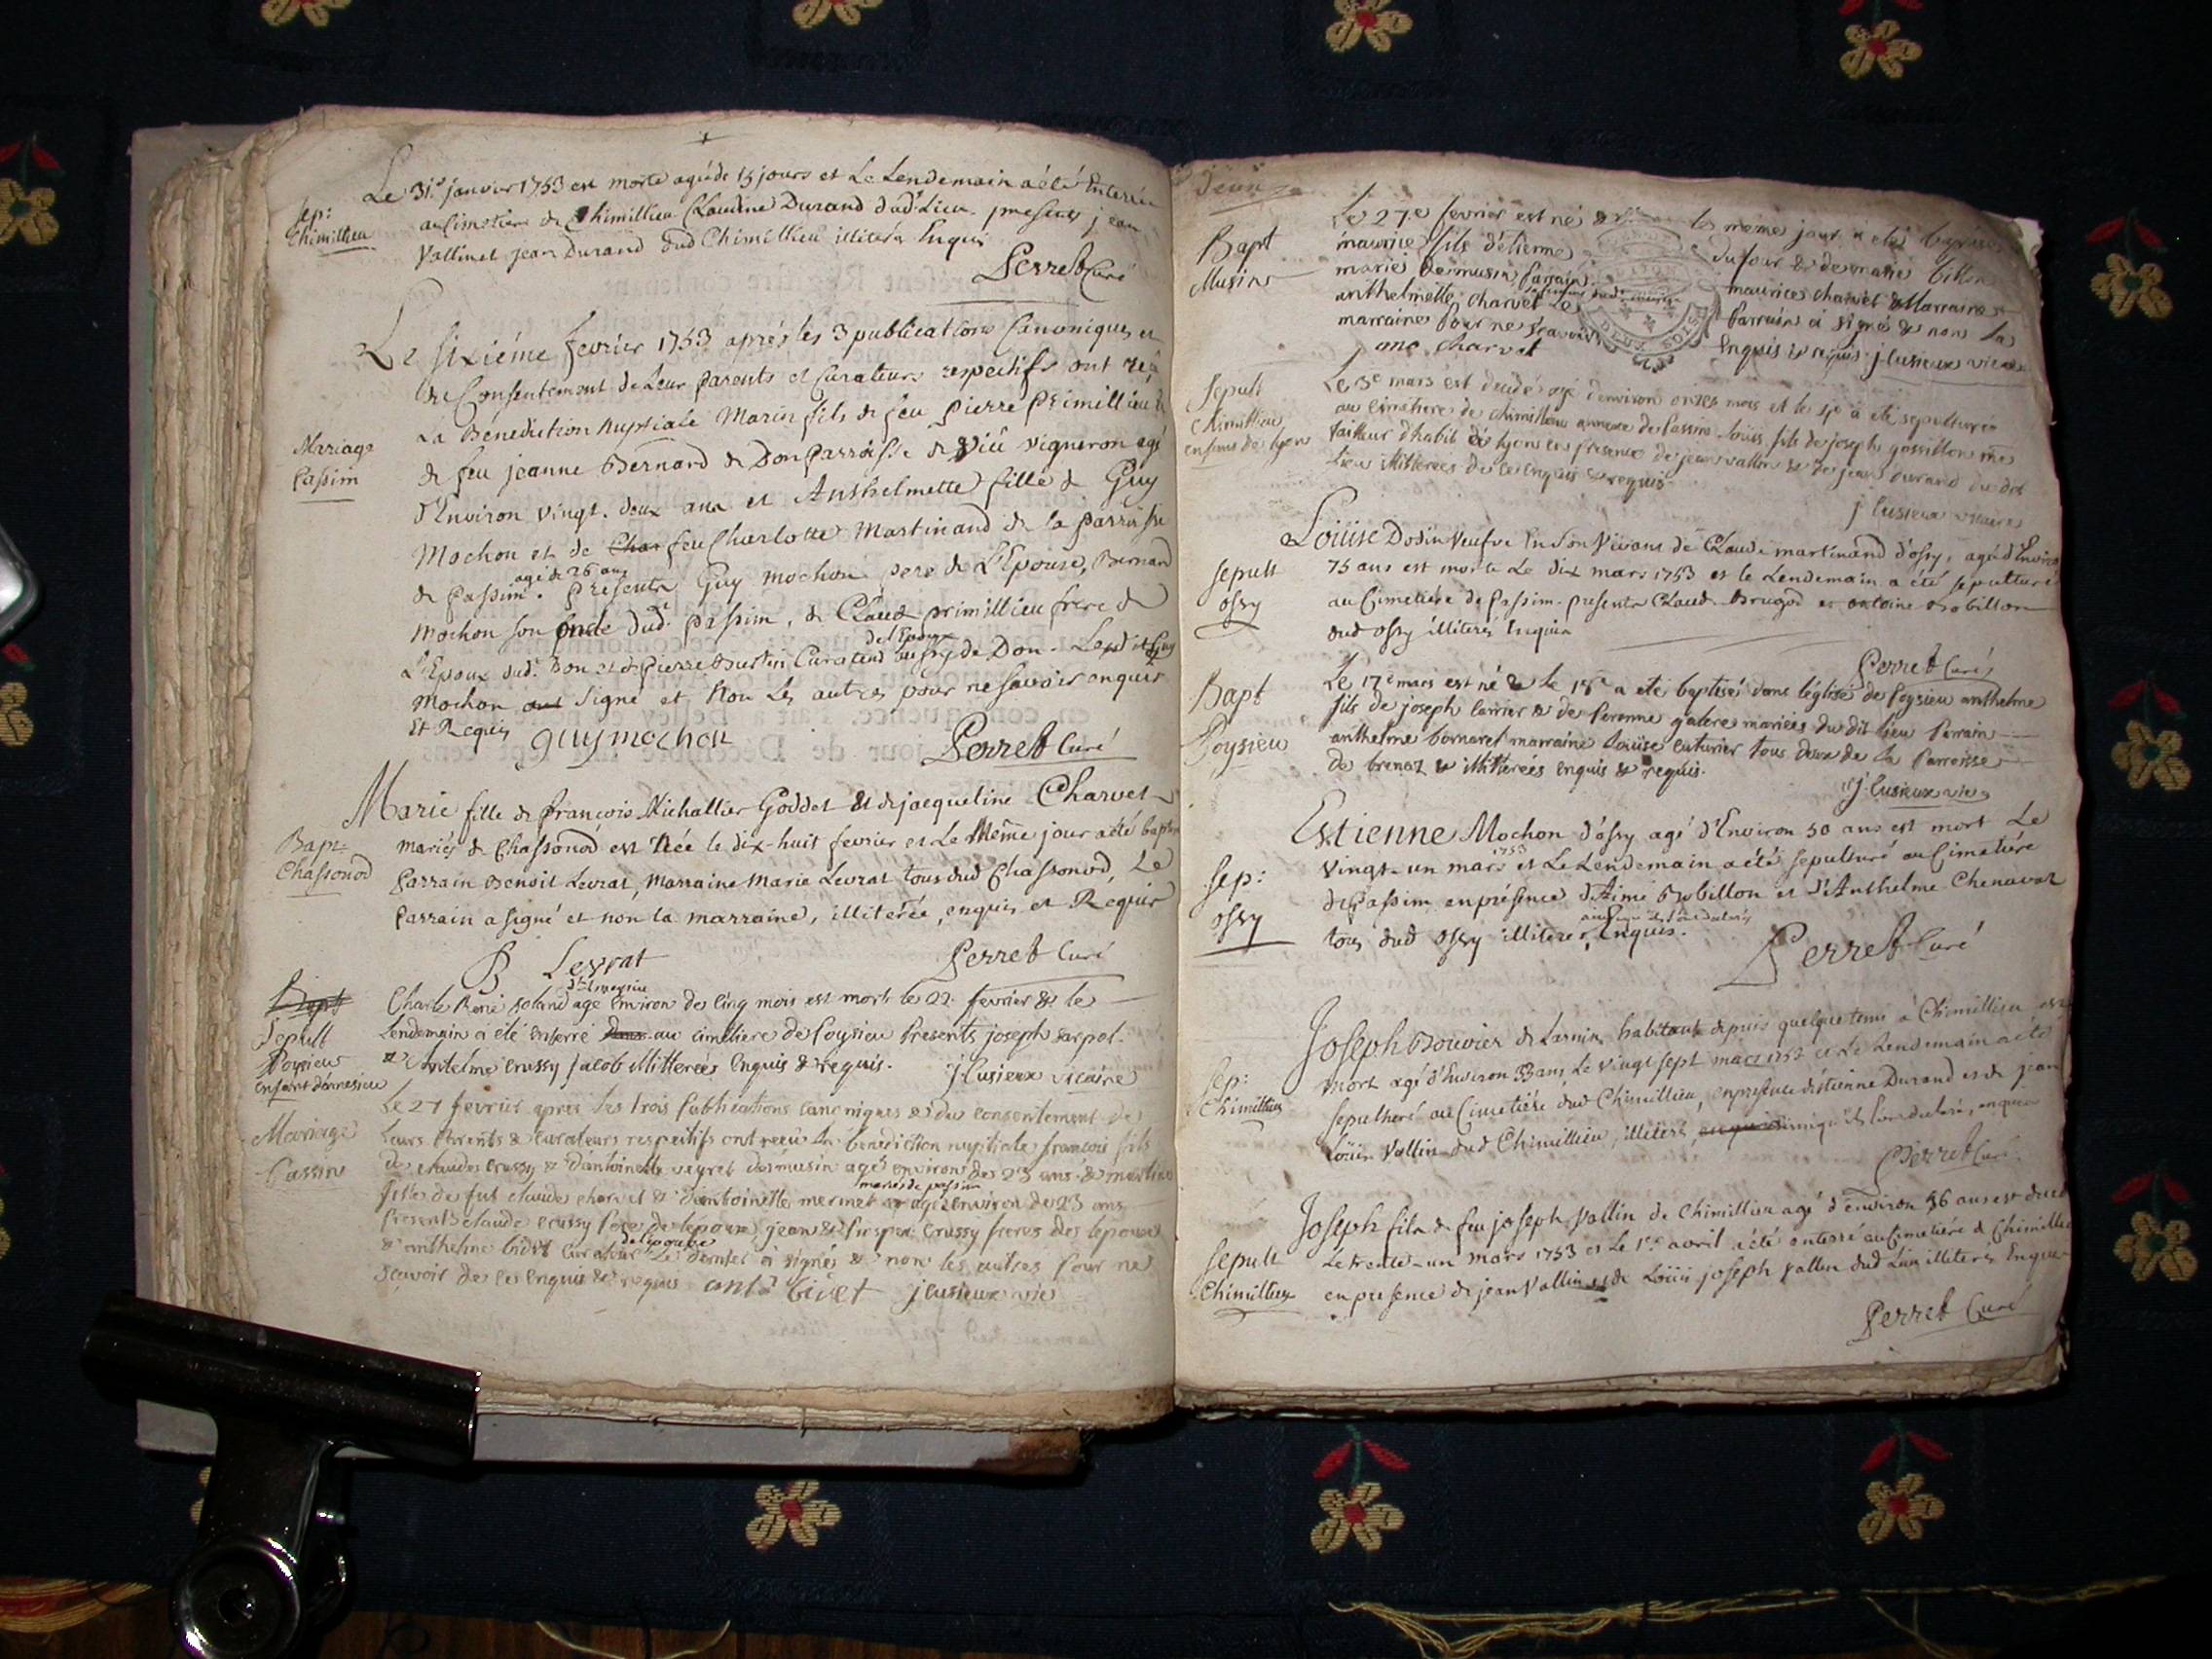 Le 31e janvier 1753 est morte agée de 15 jours et Le Lendemain a été Enterrée
Sep:
Chimillieu
au Cimetiere de Chimillieu Claudine Durand dud. Lieu. presents jean
Vallin et jean Durand dud Chimillieu illiterés Enquis
Perret Curé
Le sixiéme fevrier 1753 aprés les 3 publications Canoniques et
de Consentement de Leur parents et Curateurs respectifs ont reçu
La Benediction nuptiale Marin fils de feu pierre primillieu &
Mariage
Passim
de feu jeanne Bernard de Don parroisse de Viû vigneron agé
d'Environ vingt-deux ans et Anthelmette fille de Guy
Mochon et de feu Charlotte Martinand de la parroisse
de passim agé de 26 ans. presents Guy Mochon pere de L'Epouse, Bernard
Mochon son oncle dud. passim, & Claude primillieu frere de
L'Epoux dud. Don et de pierre Curateur de l'Epoux aussy de Don. Led. Guy
Mochon signé et non Les autres pour ne savoir enquis
Et Requis guy mochon
Perret Curé
Marie fille de françois Michallier Goddet & de jacqueline Charvet
Bapt:
Chassonod
mariés de Chassonod est Née le dix-huit fevrier et Le Même jour a été baptisée
Parrain Benoit Levrat, Marraine Marie Levrat tous dud Chassonod, Le
Parrain a signé et non la marraine, illiterée, enquis et Requis
B Levrat
Perret Curé
Sepult
Poysieu
Charle René agé environ de Cinq mois est mort le 22 fevrier & le
Lendemain a été enterré au cimetiere de Poysieu Presents joseph
& Antelme Crussy illitterées Enquis & requis. J. Cusieux vicaire
Mariage
Passin
Le 27 fevrier après les trois Publications canoniques & du consentement de
Leurs Parents & Curateurs respectifs ont reçu la bénédiction nuptiale françois fils
de claude Crussy & d'antoinette veyret de musin agé environ de 23 ans &
fille de fut claude charvet & d'antoinette mermet mariés de passin agée environ de 23 ans
Presents claude Crussy Pere de lepoux, jean & Crussy freres de lepoux
& anthelme bivet Curateur de lepouse Le dernier à signés & non les autres Pour ne
sçavoir de ce enquis & requis ant. bivet J Cusieux vic
Bapt
Musin
Le 27e fevrier est né & le même jour a été baptisé
maurice fils d'etienne dufour & de marie
mariés de musin Parrain maurice charvet & Marraine
anthelmette charvet Le Parrain à signé & non la
marraine Pour ne sçavoir Enquis & requis. J. Cusieux vicaire
charvet
Sepult
Chimillieu
enfans de Lyon
Le 3e mars est decidé agé d'environ onzes mois et le 4e à eté sepulturée
au Cimetiere de chimillieu annexe de Passin Loüis fils de joseph
tailleur d'habit de Lyon en presence de jean vallin & de jean durand du dit
Lieu illitterées de ce Enquis & requis.
J Cusieux vicaire
Loüise Dodin Veufve En son Vivant de Claude martinand d'ossy, agé d'Environ
Sepult
ossy
75 ans est morte Le dix mars 1753 et le Lendemain a été sepulturée
au Cimetiére de Passim. presents Claude et antoine Robillon
dud ossy illiterés Enquis
Perret Curé
Bapt
Poysieu
Le 17e mars est né & le 18e a eté baptisé dans l'église de Poysieu anthelme
fils de joseph & de mariées du dit lieu Parrain
anthelme marraine Loüise tous deux de la Parroisse
de brenaz & illitterées enquis & requis.
J. Cusieux vic
Estienne Mochon d'ossy agé d'Environ 50 ans est mort Le
Sep:
ossy
vingt-un mars 1753 et Le Lendemain a été sepulturé au Cimetiére
de Passim en présence d'Aimé Robillon et d'Anthelme Chenavaz
tous dud ossy illiteres, Enquis.
Perret Curé
Joseph Bouvier de habitant depuis quelque tems à Chimillieu, est
Sep:
Chimillieu
mort agé d'Environ 33 ans Le vingt sept mars 1753 et Le Lendemain a été
sepulturé au Cimetiére dud Chimillieu, en presence d'étienne Durand et de jean
Loüis Vallin dud Chimillieu, illiterés, enquis
Perret Curé
Joseph fils de feu joseph Vallin de Chimillieu agé d'environ 36 ans est
Sepult
Chimillieu
Le trente-un mars 1753 et Le 1er avril a été enterré au Cimetiére de Chimillieu
en presence de jean Vallin et de Loüis joseph Vallin dud Lieu illiterés Enquis
Perret Curé